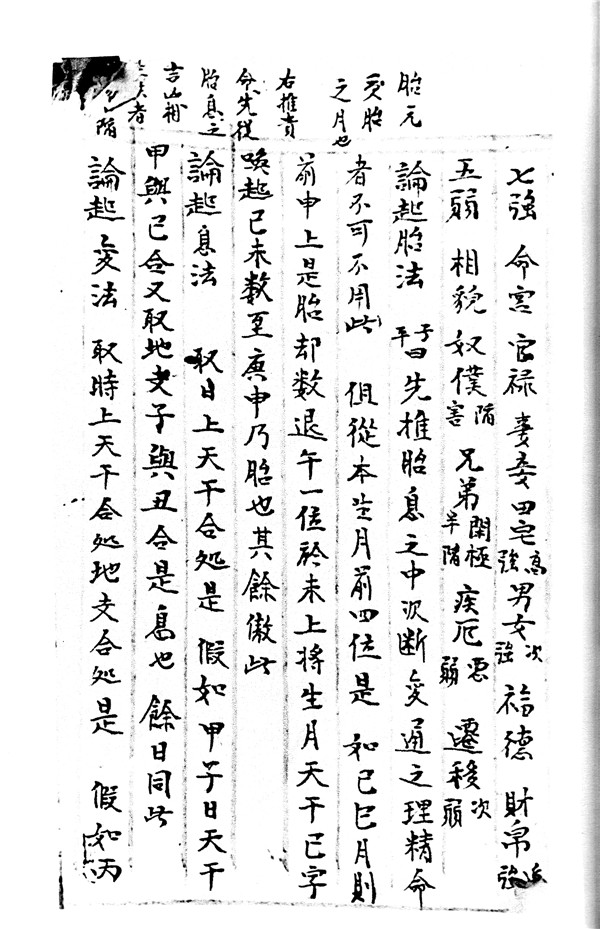 胎元
受胎
之月也
右推貴
命先從
胎息之
七強 命宮 官禄 妻妾 田宅高強 男女次強 福德 財帛
五弱 相貌 奴僕陷害 兄弟閑極半陷 疾厄惡弱 遷移次弱
論起胎法 子平曰先推胎息之中次断变通之理精命
者不可不用此 但從本生月前四位是 如己巳月則
前申上是胎却数退午一位於未上将生月天干己字
喚起己未数至庚申乃胎也其餘倣此
論起息法 取日上天干合処是 假如甲子日天干
甲與己合又取地支子與丑合是息也 餘日同此
論起变法 取時上天干合処地支合処是 假如丙